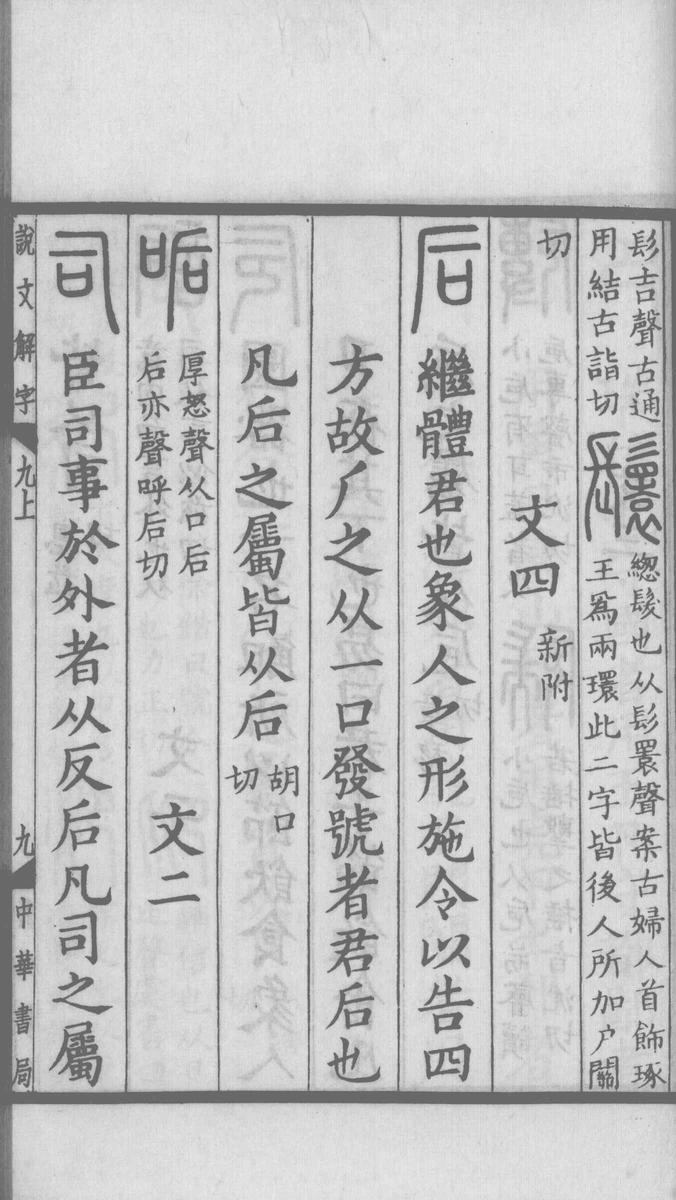 髟吉聲古通
用結古詣切
鬟
緫髮也从髟睘聲案古婦人首飾琢
王爲兩環此二字皆後人所加戶關
切
文四
新附
后 繼體君也象人之形施令以告四
方故厂之从一口發號者君后也
凡后之屬皆从后
胡口
切
㖃
厚怒聲从口后
后亦聲呼后切
文二
司 臣司事於外者从反后凡司之屬
說文解字
九上
九
中華書局